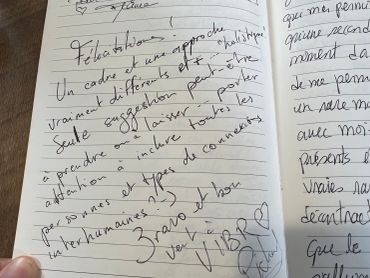 Félicitations !
Un cadre et une approche
vraiment différents et + "holistique"
Seule suggestion peut-être
à prendre ou à laisser... porter
attention à inclure toutes les
personnes et types de connexions
interhumaines ? :-)
Bravo et bon
vent à
VIBRO
que me permi
qu'une second
moment da
de me perm
un rare mo
avec moi-
présents e
vraies ra
décontrac
Que le